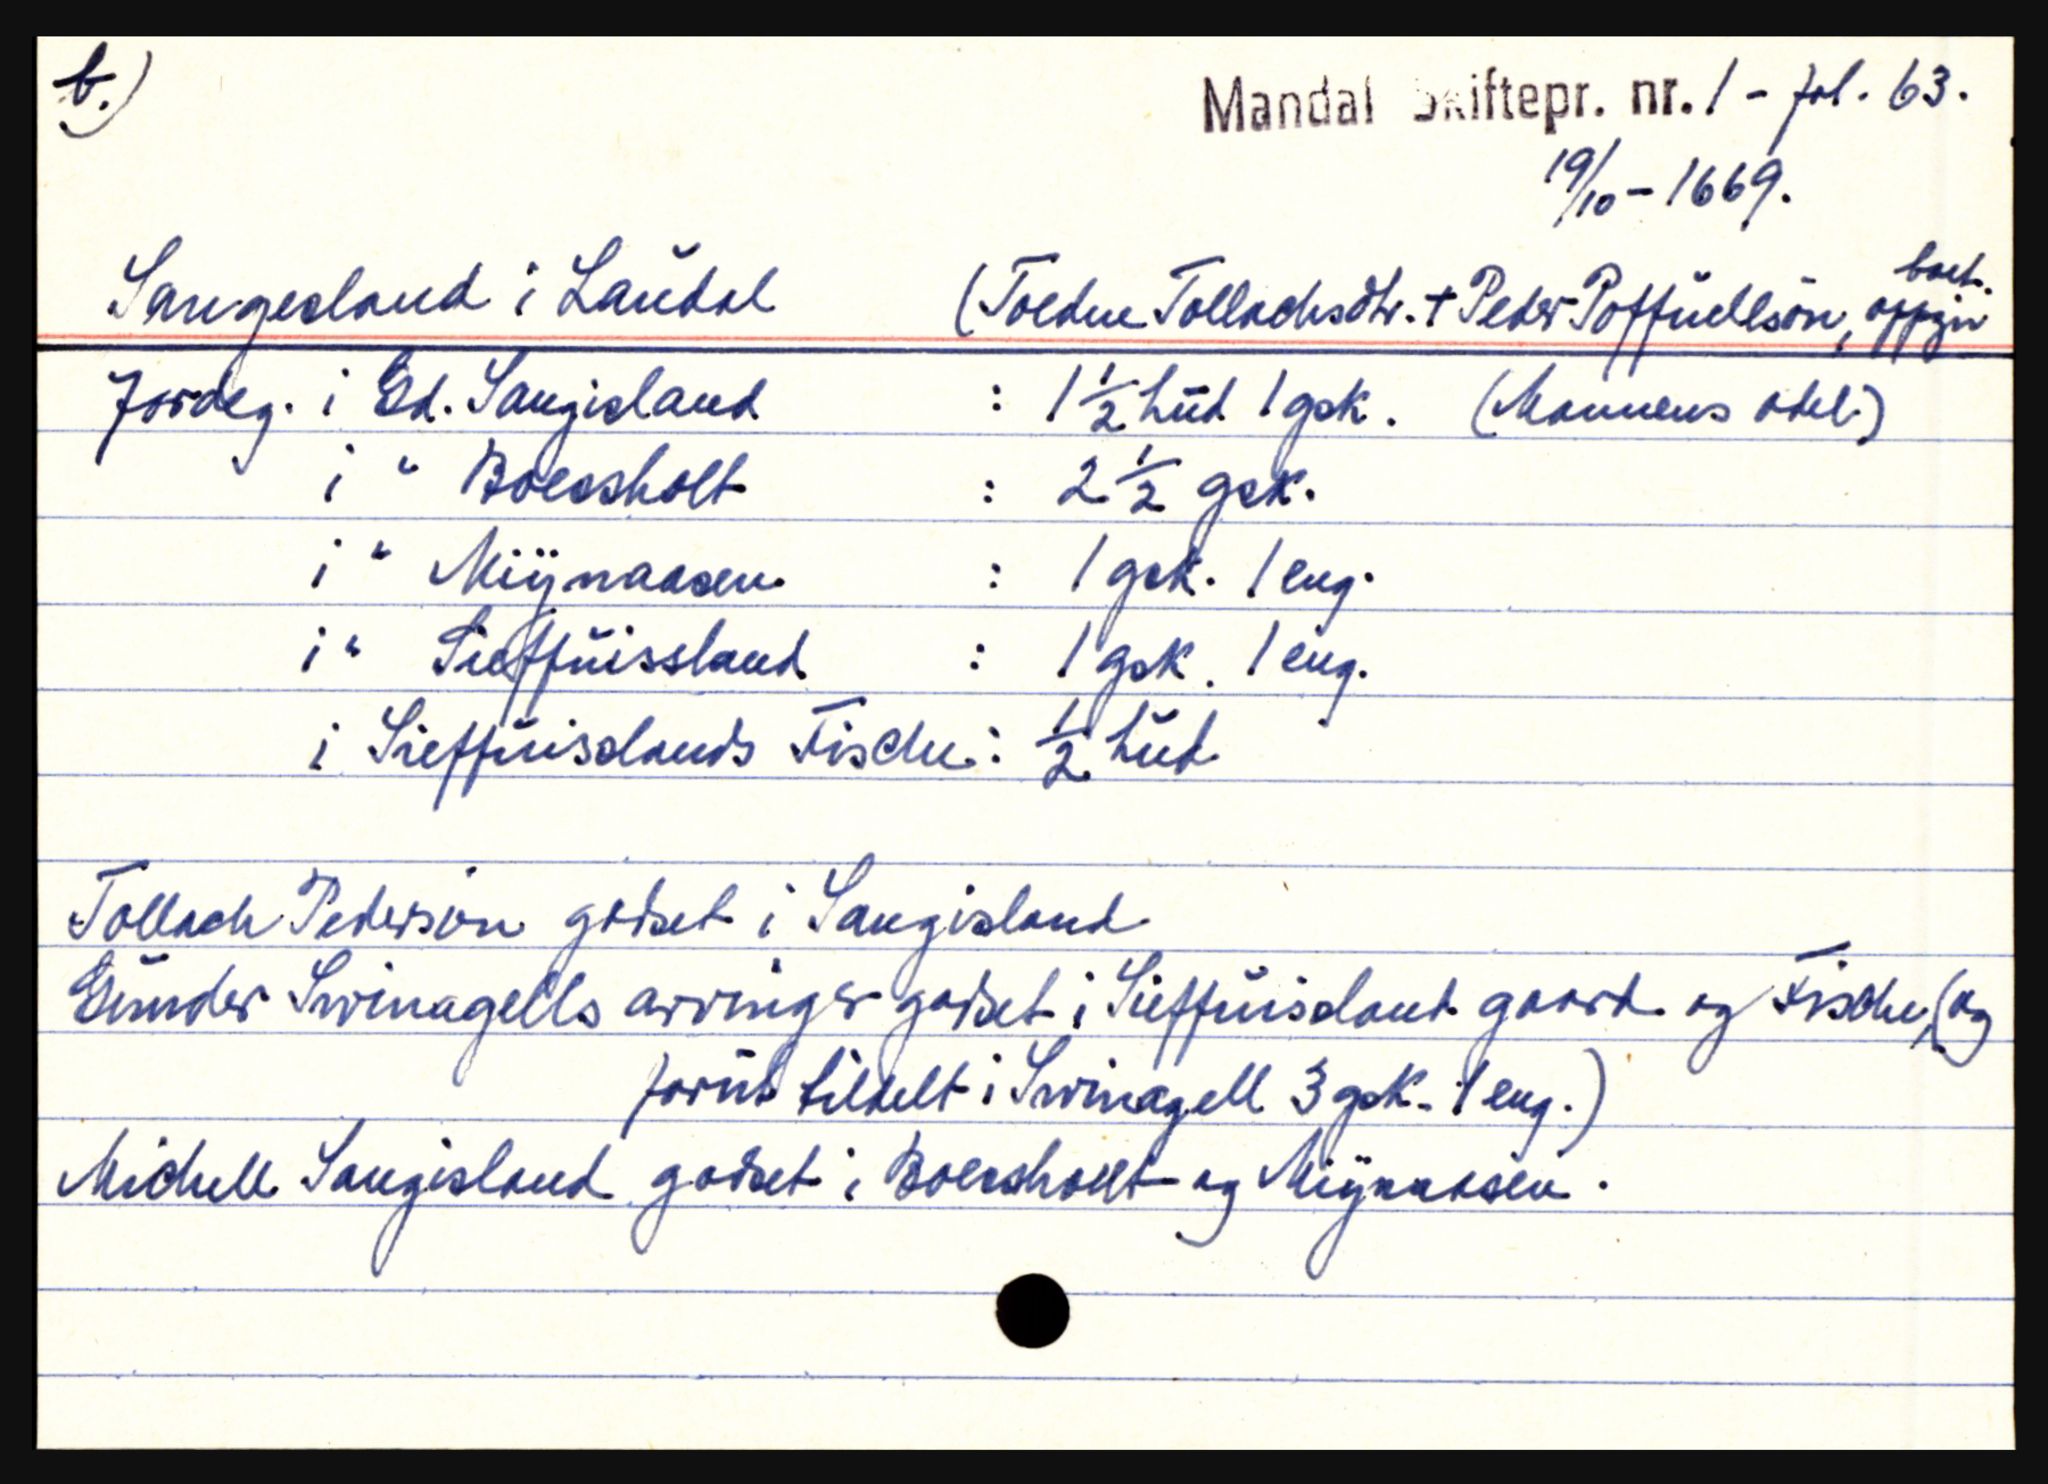 b.)
Mandal Skiftepr. nr. 1 - fol. 63.
19/10 - 1669.
Sangesland i Laŭdal (Toedne Tollachsdtr. + Peder Poffŭelsön, boet. oppgn
Jordeg. i Gd. Sangisland : 1 1/2 hŭd 1 gsk. (Mannens odel)
i " Boessholt : 2 1/2 gsk.
i " Miÿnaasen : 1 gsk. 1 eng.
i " Sieffŭissland : 1 gsk. 1 eng.
i Sieffŭislands Fische : 1/2 hŭd
Tollach Pedersön godset i Sangisland
Gŭnder Swinagells arvinger godset i Sieffŭisland gaard og Fische, (og
forŭt tildelt i Swinagell 3 gsk. 1 eng.)
Michell Sangisland godset i Boessholt og Miÿnaasen.